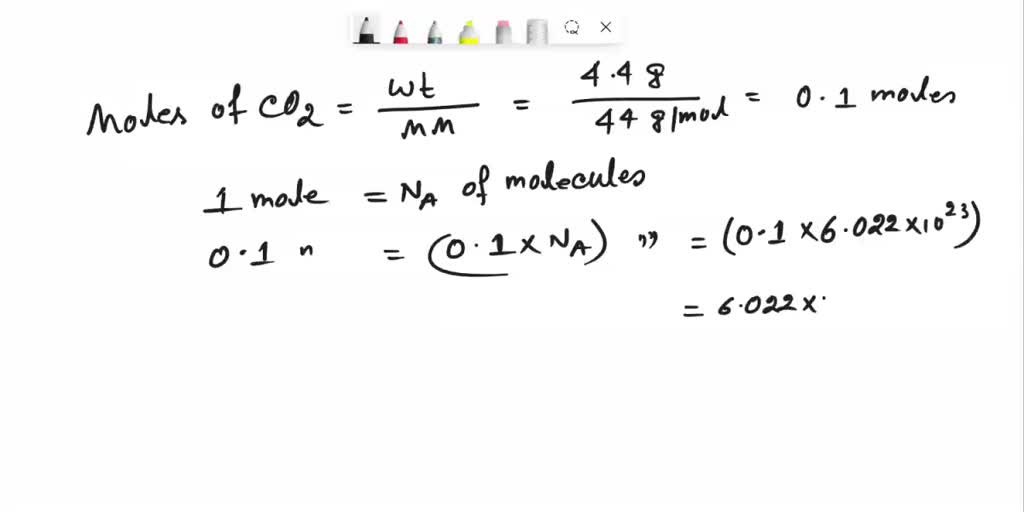 Moles of CO2 = wt/MM = 4.4 g/44 g/mol = 0.1 moles
1 mole = NA of molecules
0.1 " = (0.1 × NA) " = (0.1 × 6.022 × 10^23)
= 6.022 ×